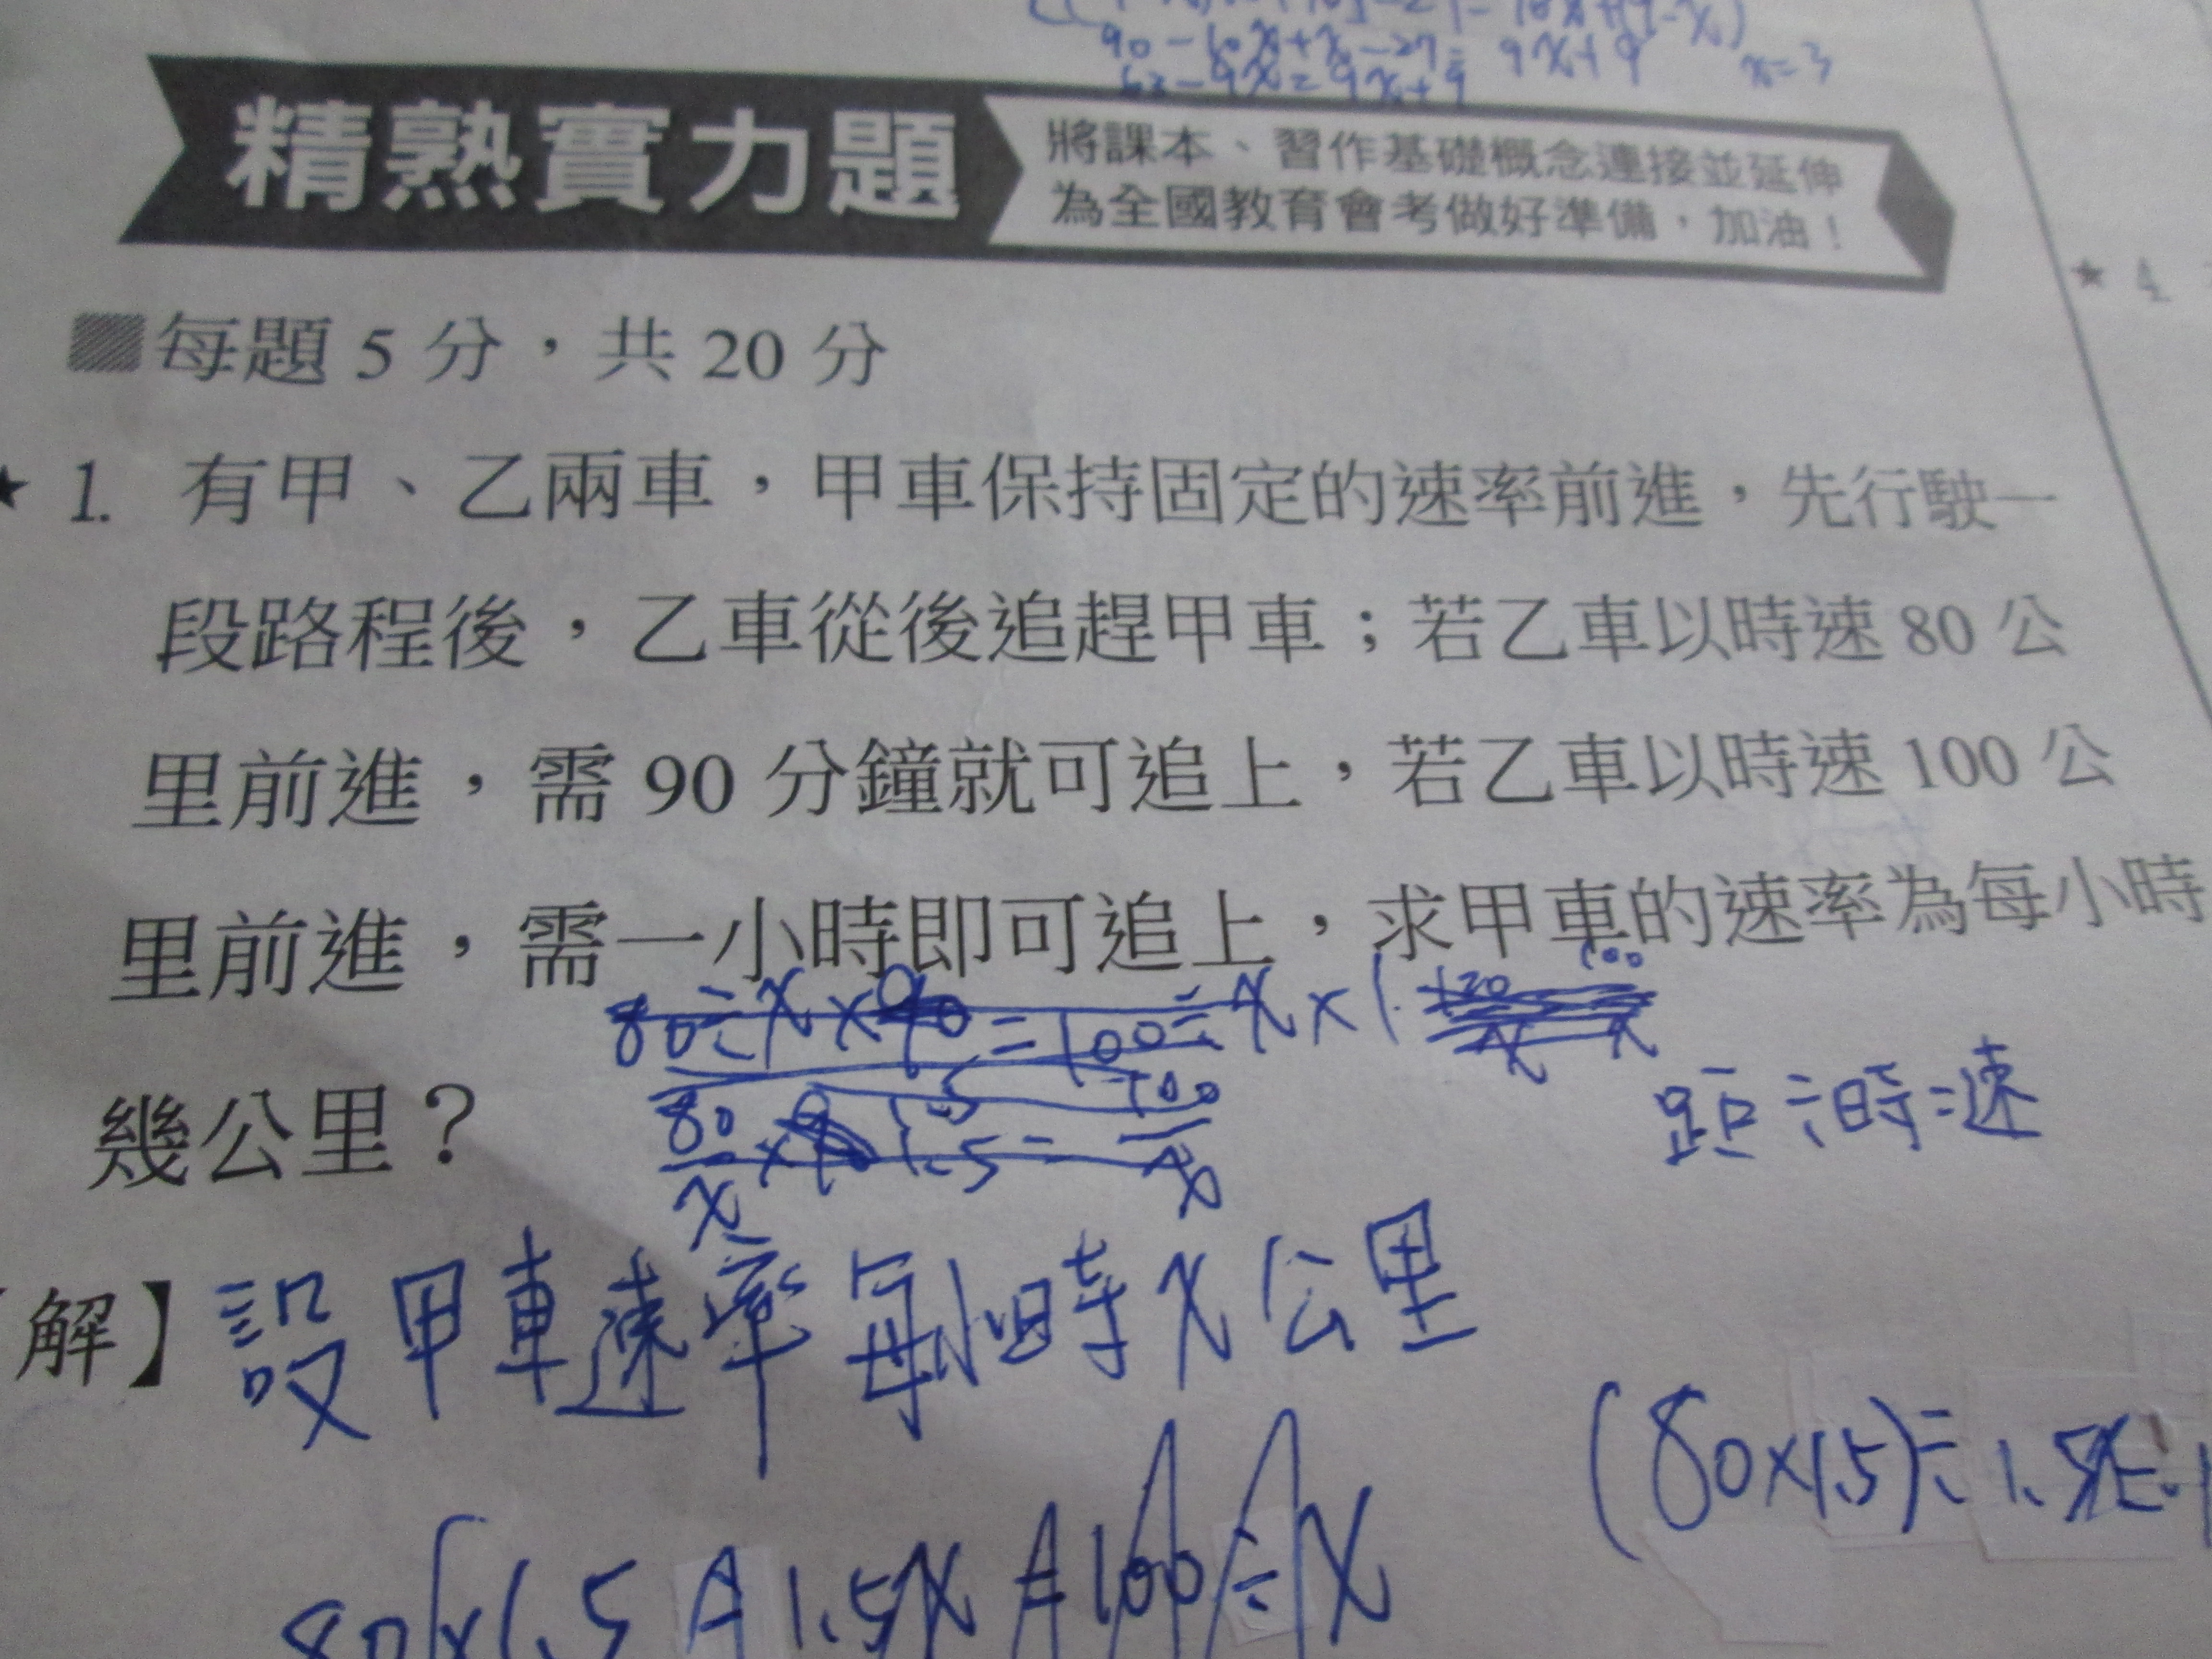 90-10x+x-27= 9x+9
x=3
63-9x=9x+9
精熟實力題
將課本、習作基礎概念連接並延伸
為全國教育會考做好準備，加油！
★ 4.
每題 5 分，共 20 分
★ 1. 有甲、乙兩車，甲車保持固定的速率前進，先行駛一
段路程後，乙車從後追趕甲車；若乙車以時速 80 公
里前進，需 90 分鐘就可追上，若乙車以時速 100 公
里前進，需一小時即可追上，求甲車的速率為每小時
幾公里？
80÷x×90=100÷x×1
80/x × 1.5 = 100/x
距÷時=速
【解】設甲車速率每小時x公里
(80×1.5)÷1.5
80×1.5=1.5x=100÷x